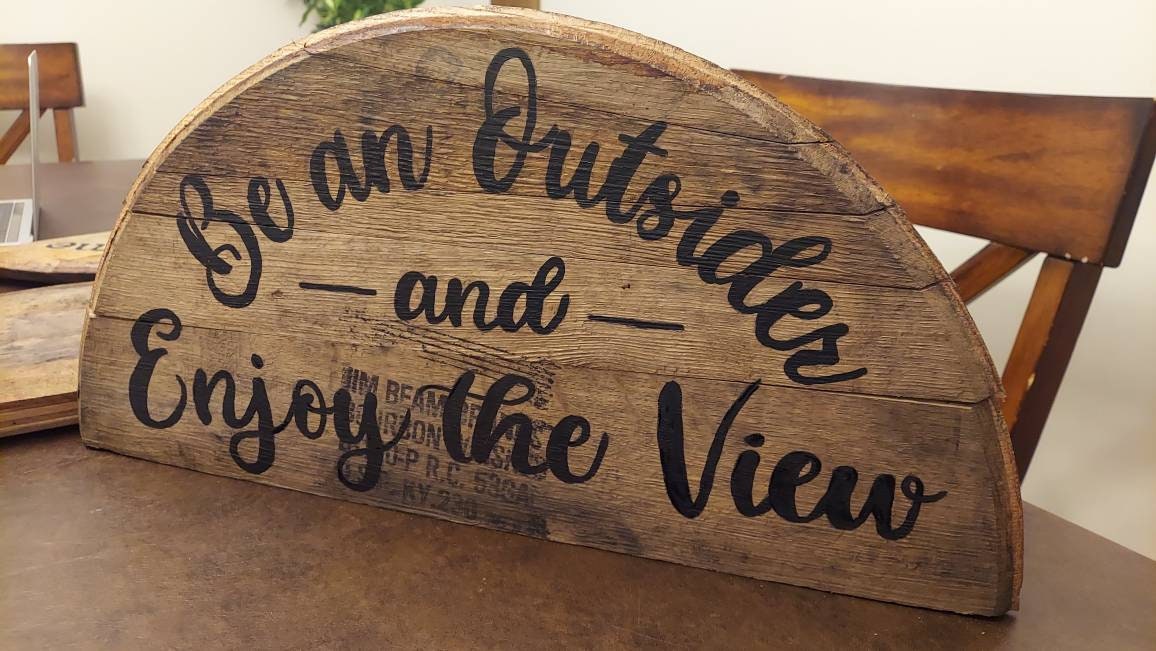 Be an Outsider
— and —
Enjoy the View
JIM BEAM
BOURBON
R.C.
KY